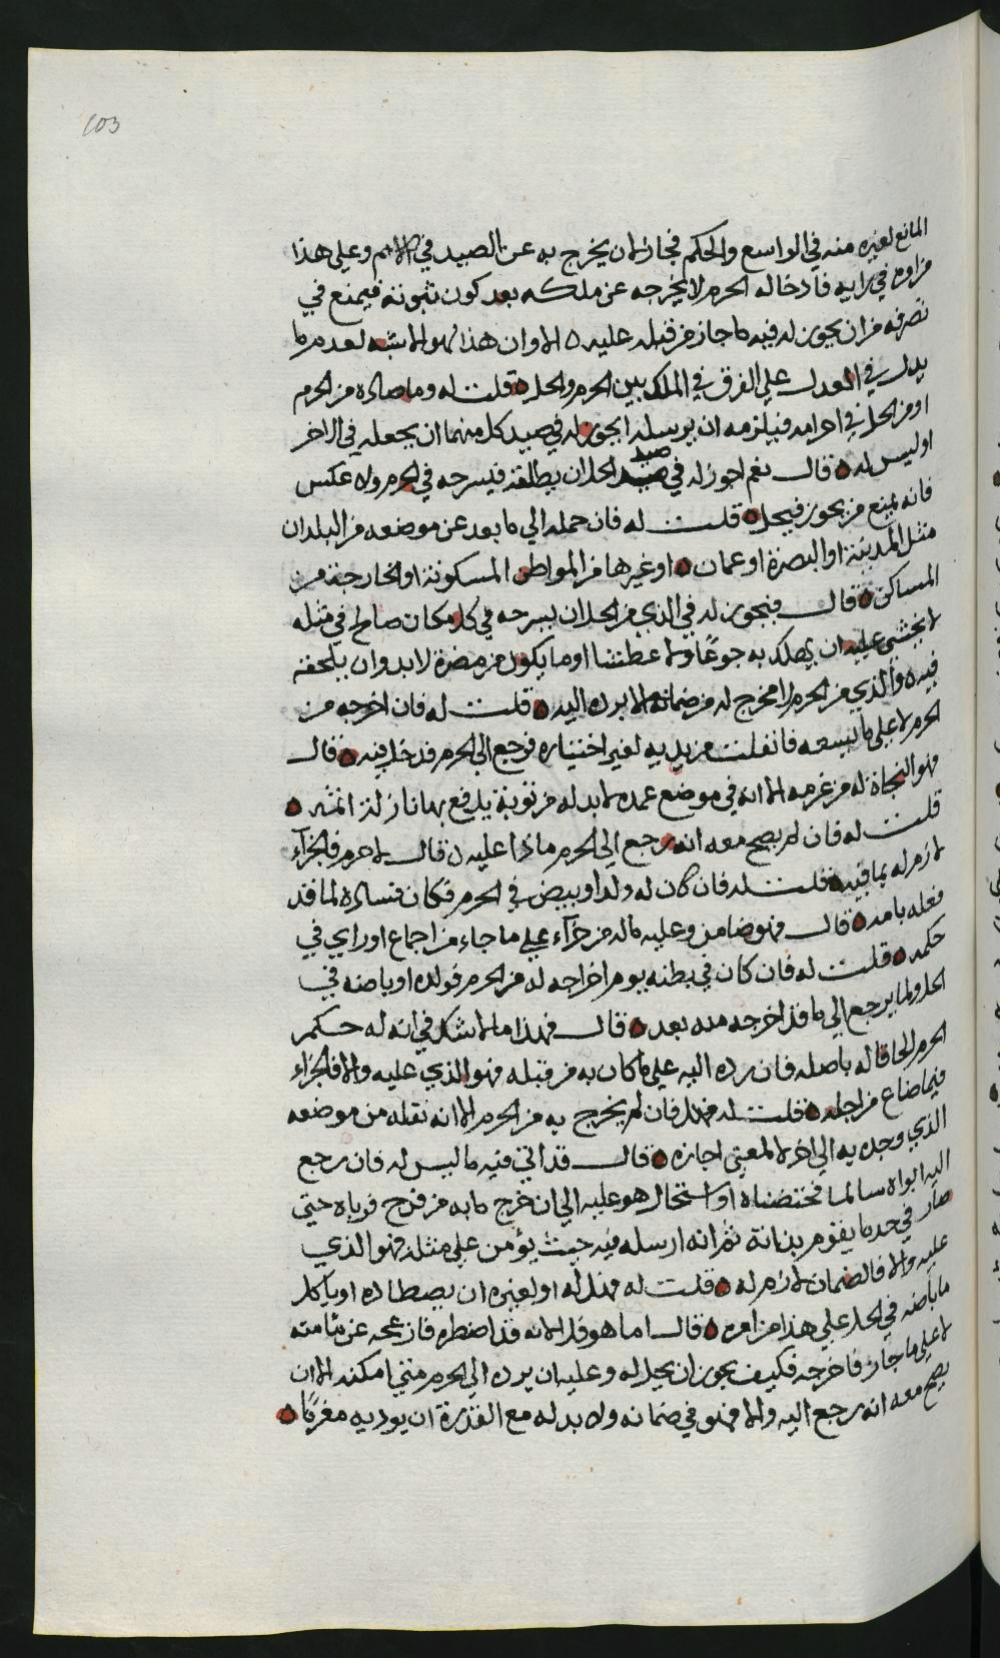 103
المانع لغيره منه في الواسع والحكم فجاز لان يخرج به عن الصيد في الاسم وعلى هذا
من اوه في رايه فادخاله الحرم لا يخرجه عن ملكه بعد كون ثبوته فيمنع في
تصرفه من ان يجوز له فيه ما جاز من قبله عليه ٥ الا وان هذا لهو الاشبه لعدم ما
يدل في العدل على الفرق في الملك بين الحرم والحل ٥ قلت له وما صاده من الحرم
او من الحل في احرامه فيلزمه ان يرسله ايجوز له في صيد كل منهما ان يجعله في الاخر
او ليس له ٥ قال نعم اجوز له في صيد الحل ان يطلقه فيسرحه في الحرم ولا عكس
فانه يمنع من يجوز فيحل ٥ قلت له فان حمله الى ما بعد عن موضعه من البلدان
مثل المدينة او البصرة او عمان ٥ او غيرها من المواطن المسكونة او الخارجة من
المساكن ٥ قال فيجوز له في الذي من الحل ان يسرحه في كل مكان صالح في مثله
لا يخشى عليه ان يهلك به جوعًا ولا عطشا او ما يكون من مضرة لابد وان يلحقه
فيه ٥ والذي من الحرم لا مخرج له من ضمانه الا برده اليه ٥ قلت له فان اخرجه من
الحرم لا على ما يسعه فانفلت من يديه لغير اختياره فرجع الى الحرم فدخل فيه ٥ قال
فهو النجاة له من غرمه الا انه في موضع عمده لابد له من توبة يدفع بها ما نزل من اثمه ٥
قلت له فان لم يصح معه انه رجع الى الحرم ماذا عليه ٥ قال لا غرم فالجزاء
لازم له بما فيه ٥ قلت له فان كان له ولد او بيض في الحرم فكان فساده لما قد
فعله بامه ٥ قال فهو ضامن وعليه ماله من جزاء على ما جاء من اجماع او راي في
حكمه ٥ قلت له فان كان في بطنه يوم اخراجه له من الحرم فولده او باضه في
الحل ولما يرجع الى ما قد اخرجه منه بعد ٥ قال فهذا ما لا شك في انه له حكم
الحرم الحاقا له باصله فان رده اليه على ما كان به من قبله فهو الذي عليه والا فالجزاء
فيما ضاع من اجله ٥ قلت له فهذا فان لم يخرج به من الحرم الا انه نقله من موضعه
الذي وجده به الى اخر لا لمعنى اجازه ٥ قال قد اتى فيه ما ليس له فان رجع
اليه ابواه سالما فحتضناه او استحال هو عليه الى ان خرج ما به من فرخ فرباه حتى
صار في حد ما يقوم بذاته ثم انه ارسله فيه حيث يؤمن على مثله فهو الذي
عليه والا فالضمان لازم له ٥ قلت له فهل له او لغيره ان يصطاده او ياكل
ما باضه في الحل على هذا من امره ٥ قال اما هو فلا لانه قد اضطره فازعجه عن مامنه
لا على ما جاز فاخرجه فكيف يجوز ان يحل له وعليه ان يرده الى الحرم متى امكنه الا ان
يصح معه انه رجع اليه والا فهو في ضمانه ولابد له مع القدرة ان يوديه مغرمًا ٥